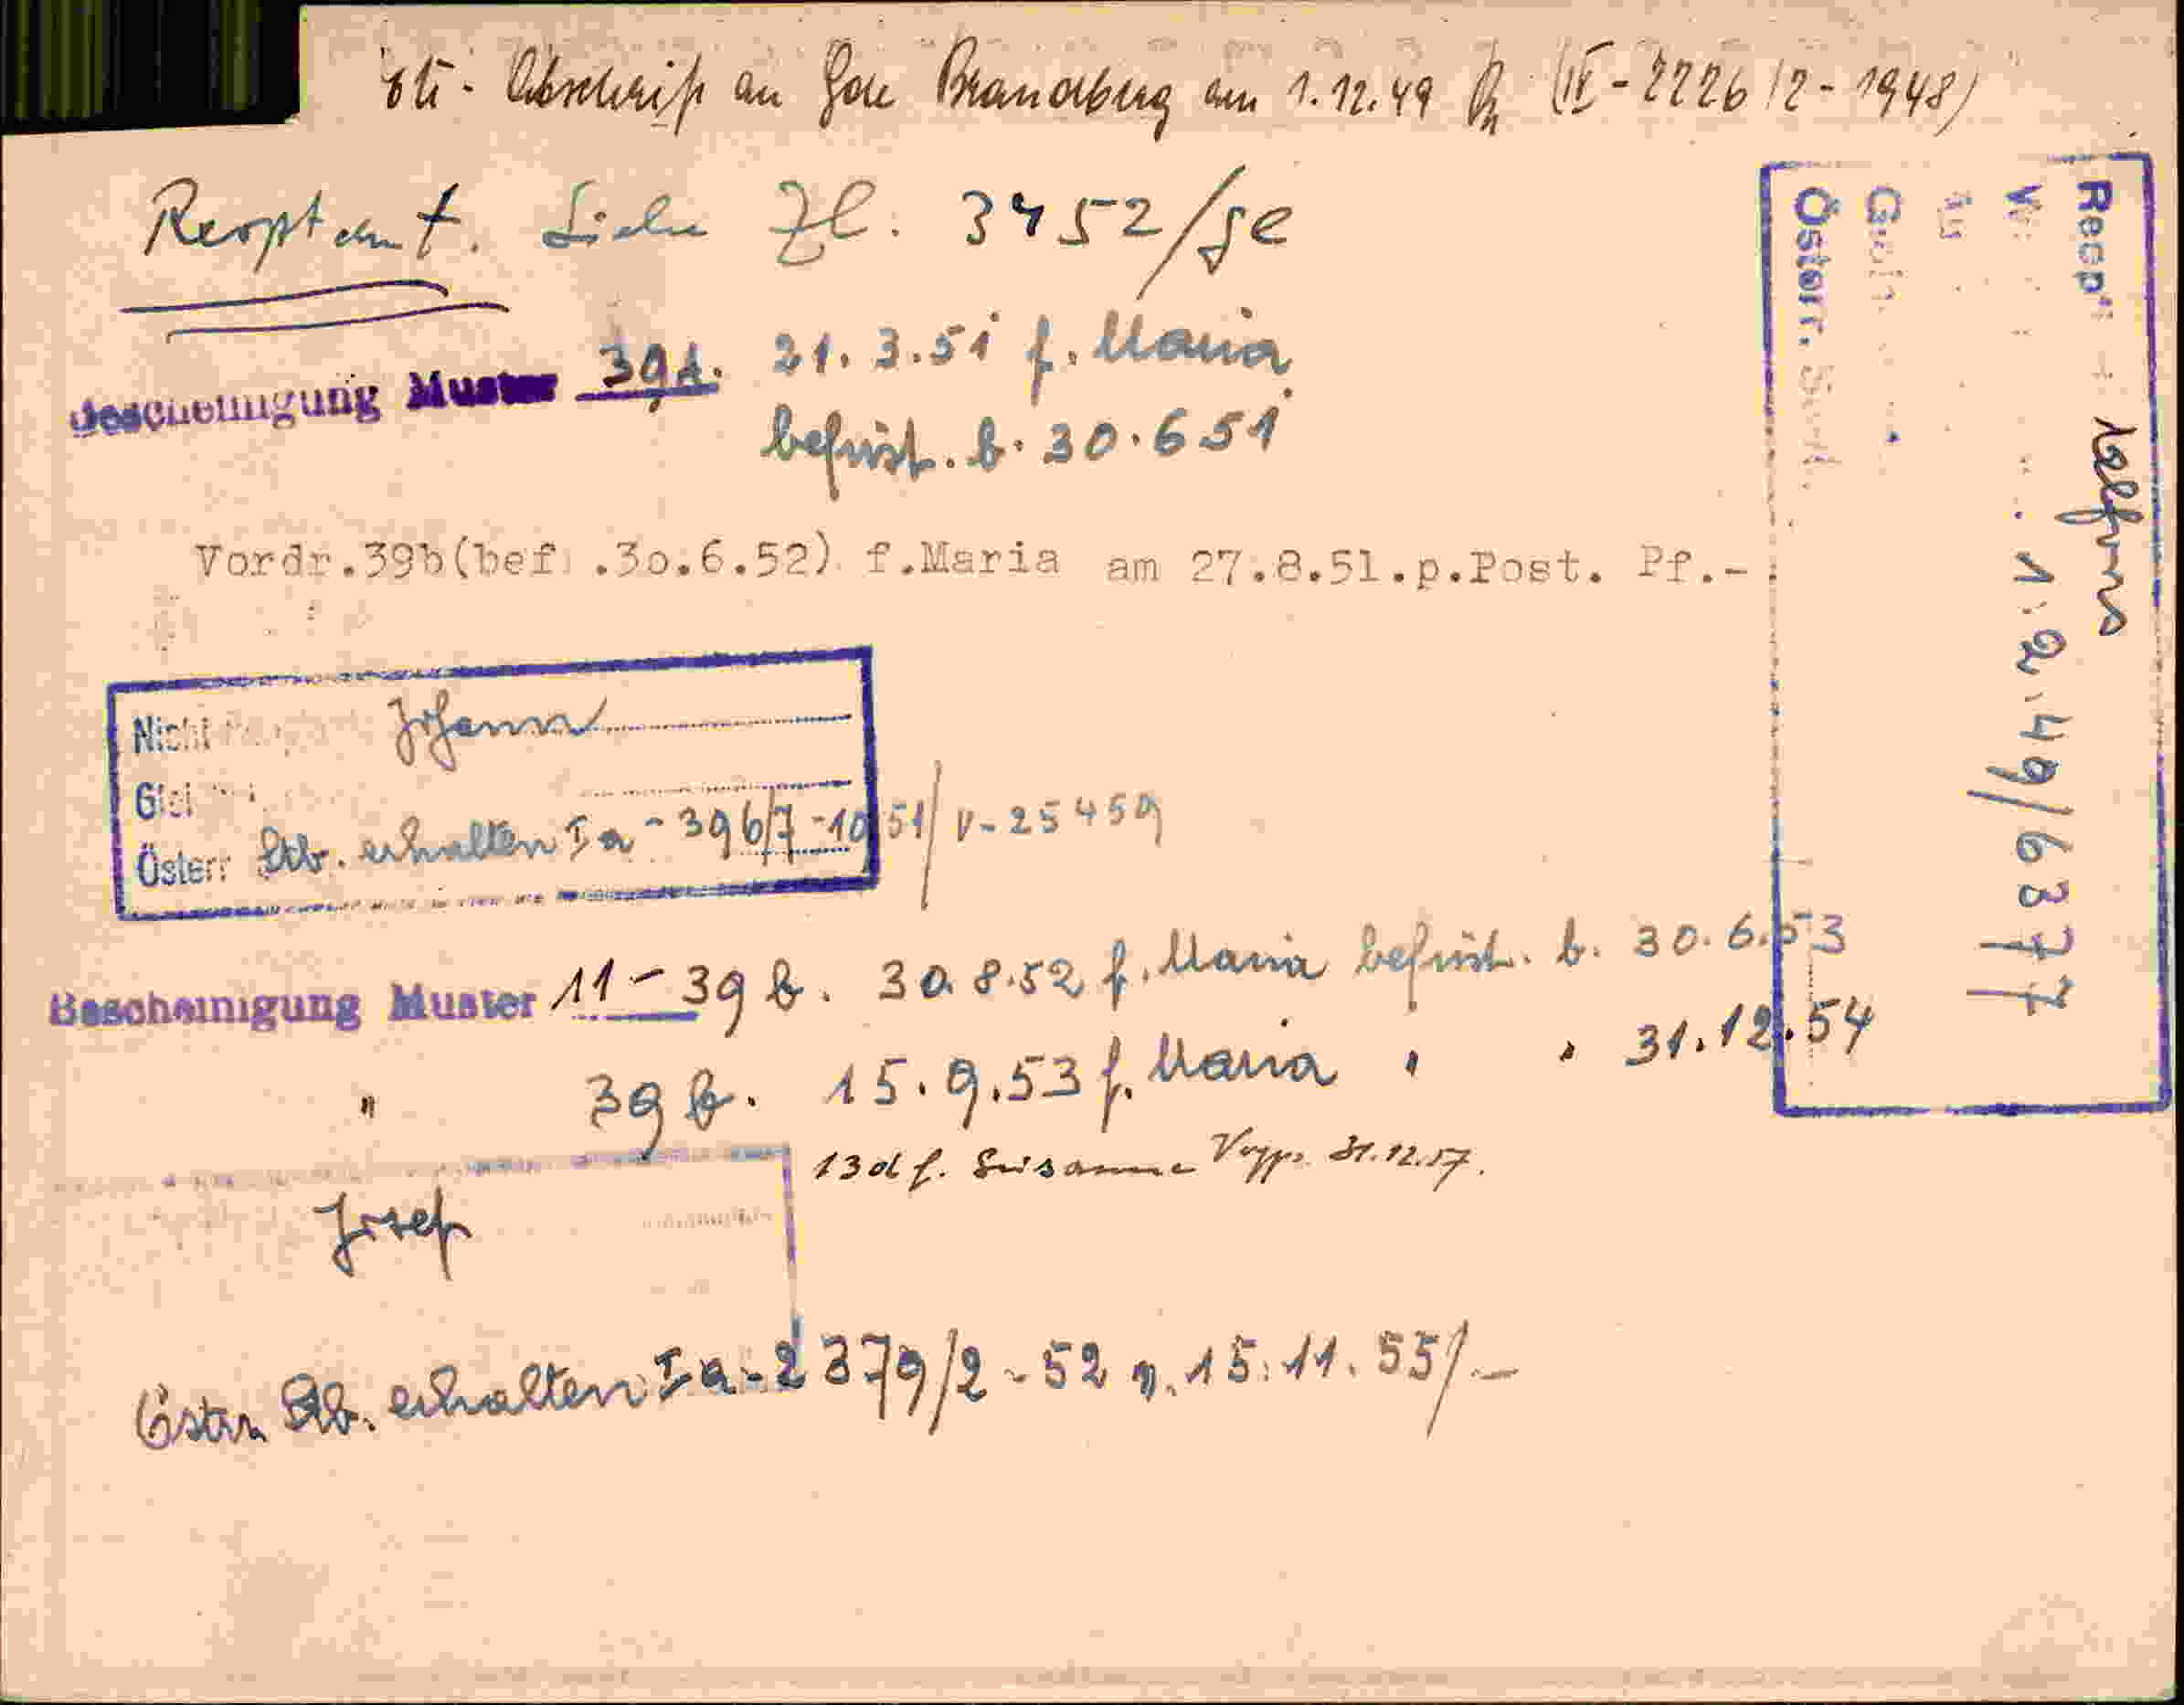 Abschrift an Gde Brandberg am 1.12.49 (II-2226/2-1948)
Reoptant. Siehe Zl. 3452/Je
Bescheinigung Muster 39A. 21.3.51 f. Maria
befrist. b. 30.6 51
Vordr.39b(bef .30.6.52) f.Maria am 27.8.51.p.Post. Pf.-
Nicht Johann
Österr Stb. erhalten Ia-396/7-1951/V-25459
Bescheinigung Muster 11-39 b. 30.8.52 f. Maria befrist. b. 30.6.53
" 39 b. 15.9.53 f. Maria " " 31.12.54
13d f. Susanna 31.12.57.
Josef
Österr Stb. erhalten Ia-2379/2-52 v. 15.11.55/-
Reopt Alfons
1.2.49/6377
Österr.